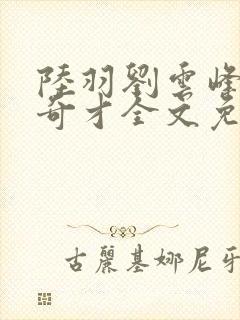 陸羽劉雲峰
奇才全文免
古麗基娜尼牙